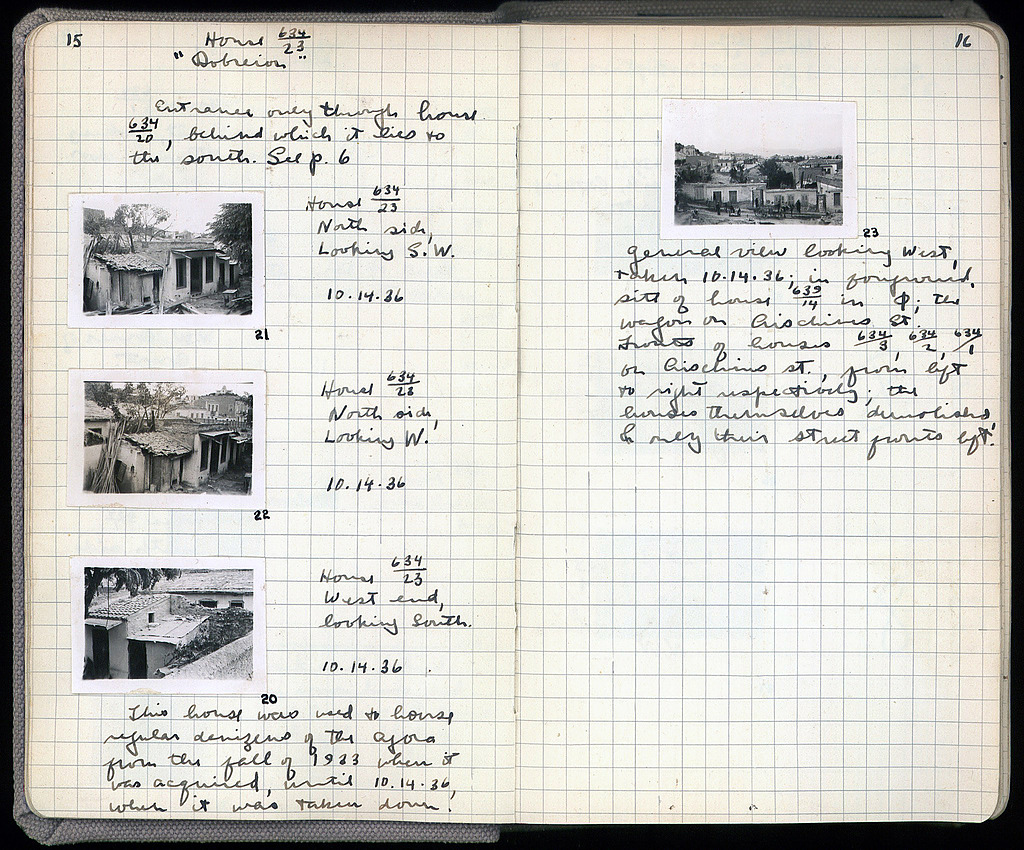 15
House 634/23
"Dobreion"
Entrance only through house
634/20, behind which it lies to
the south. See p. 6
House 634/23
North side,
Looking S.W.
10.14.36
21
House 634/23
North side,
Looking W.
10.14.36
22
House 634/23
West end,
looking South.
10.14.36
20
This house was used to house
regular denizens of the Agora
from the fall of 1933 when it
was acquired, until 10.14.36,
when it was taken down.
16
23
General view looking West,
taken 10.14.36; in foreground,
site of house 639/14 in Φ; the
wagon on Aischines St.
Fronts of houses 634/3, 634/2, 634/1
on Aischines St., from left
to right respectively; the
houses themselves demolished,
& only their street fronts left.